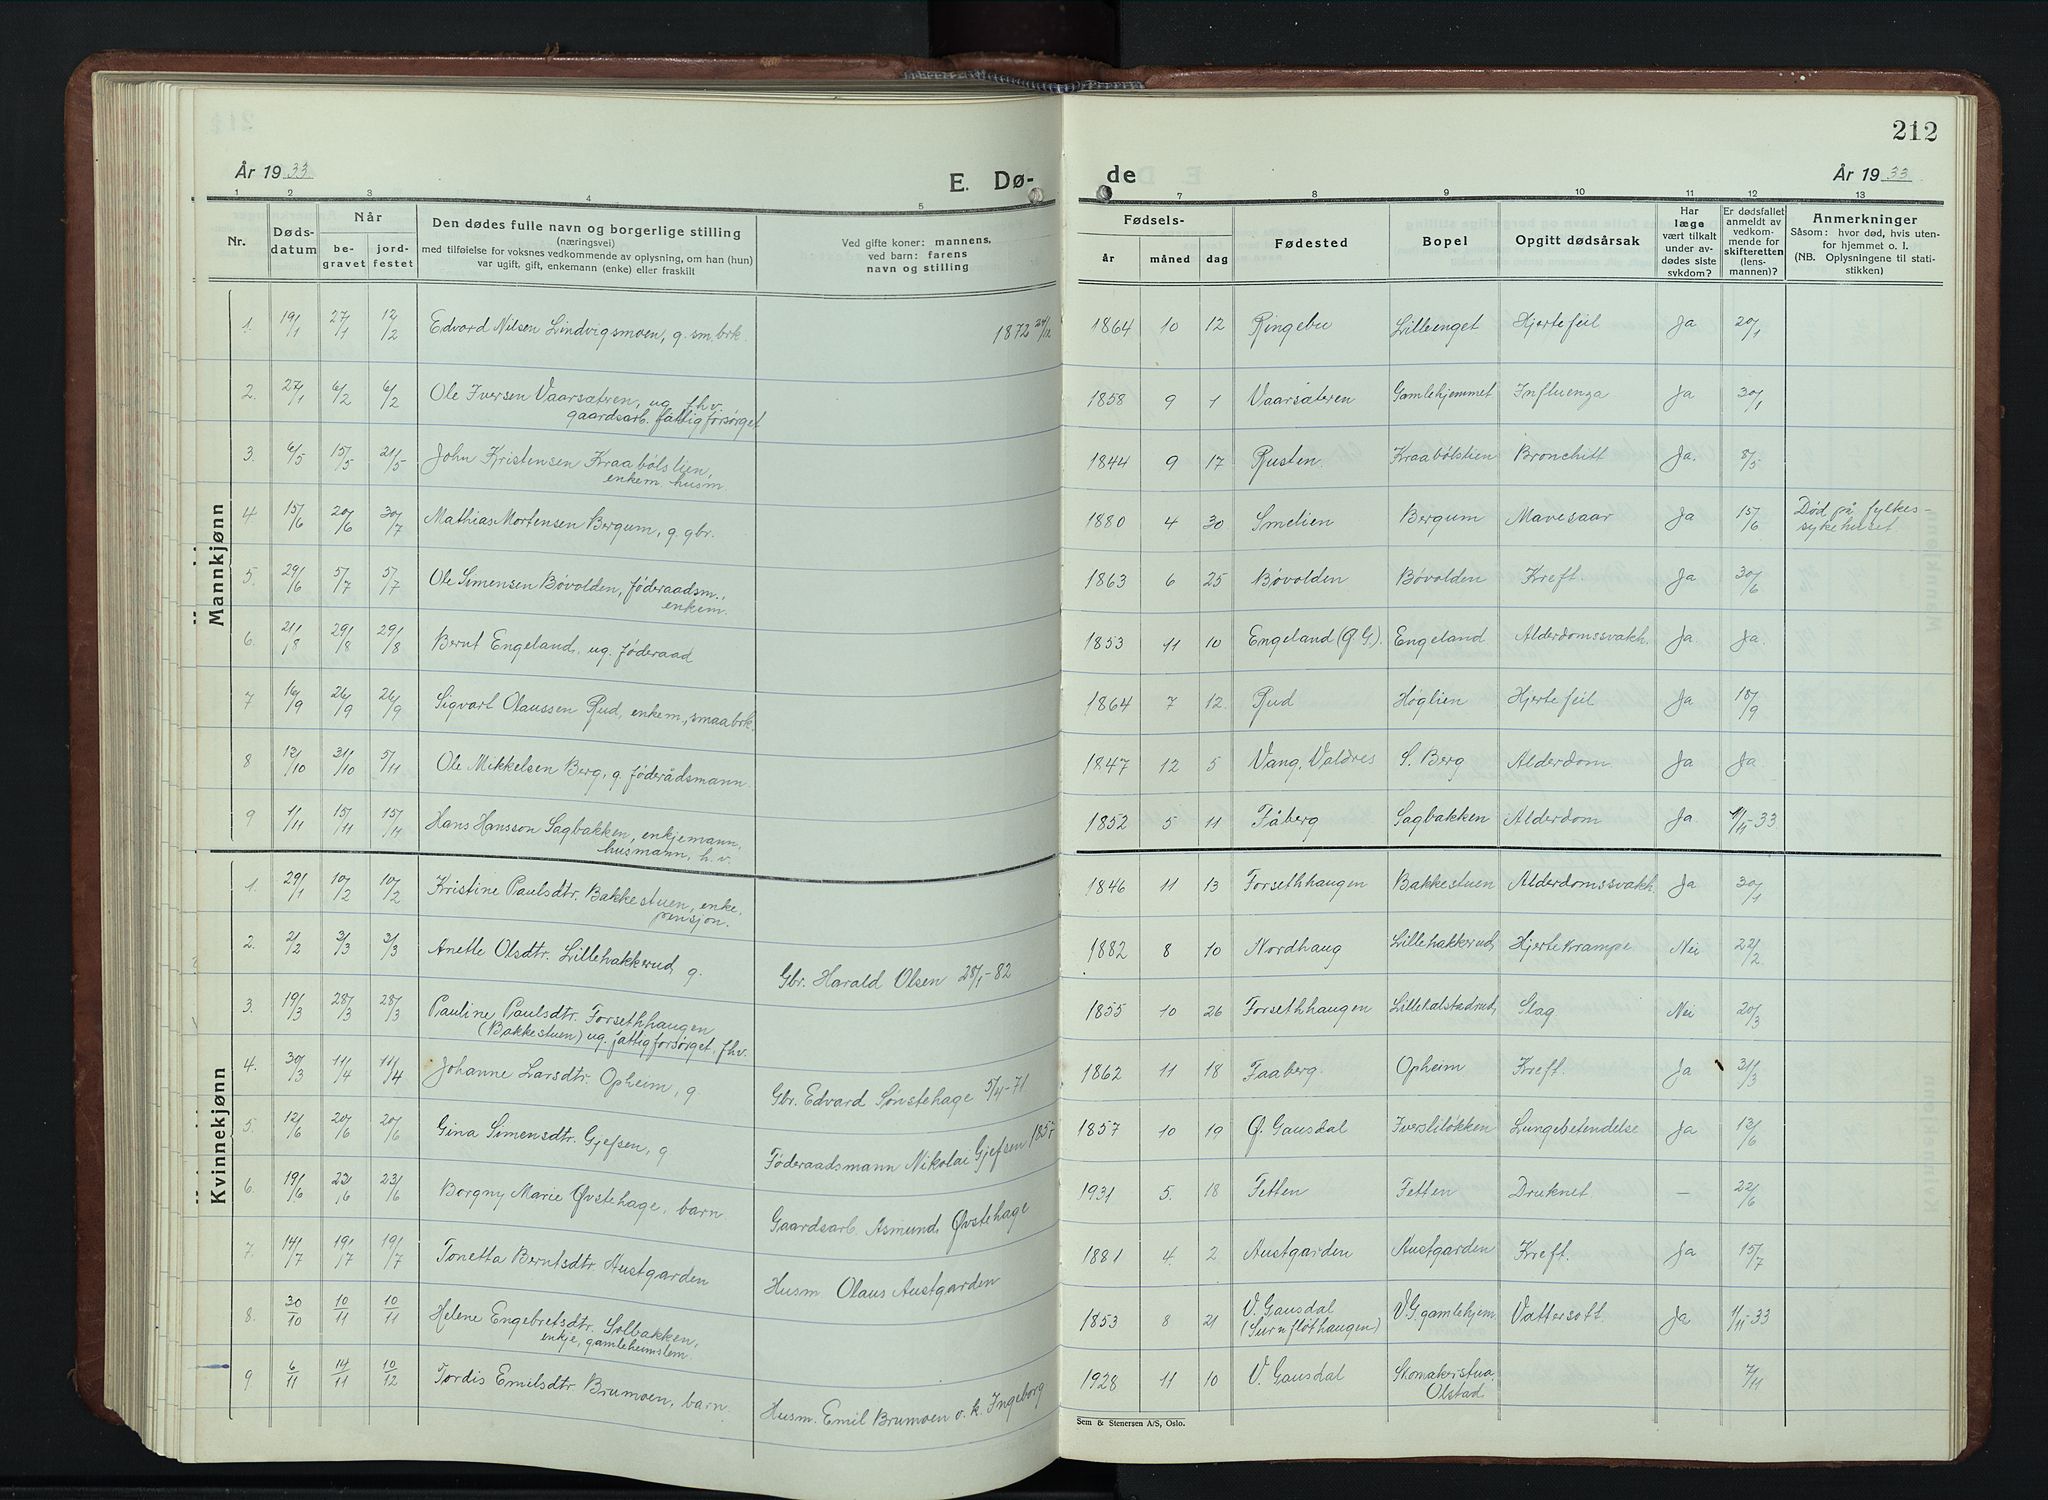 212
År 1933
E. Dø-
de
År 1933
1 2 3 4 5 7 8 9 10 11 12 13
Nr.
Døds-
datum
Når
be-
gravet
jord-
festet
Den dødes fulle navn og borgerlige stilling
(næringsvei)
med tilføielse for voksnes vedkommende av oplysning, om han (hun)
var ugift, gift, enkemann (enke) eller fraskilt
Ved gifte koner: mannens,
ved barn: farens
navn og stilling
Fødsels-
år måned dag
Fødested
Bopel
Opgitt dødsårsak
Har
læge
vært tilkalt
under av-
dødes siste
sykdom?
Er dødsfallet
anmeldt av
vedkom-
mende for
skifteretten
(lens-
mannen)?
Anmerkninger
Såsom: hvor død, hvis uten-
for hjemmet o. l.
(NB. Oplysningene til stati-
stikken)
Mannkjønn
1. 19/1 27/1 12/2 Edvard Nilsen Lindvigsmoen, g. sm.brk. 1872 24/12 1864 10 12 Ringebu Lilleenget Hjertefeil Ja 20/1
2. 27/1 6/2 6/2 Ole Iversen Vaarsætren, ug. fhv. 1858 9 1 Vaarsæteren Gamlehjemmet Influenza Ja 30/1
gaardsarb. fattigforsørget
3. 6/5 15/5 21/5 John Kristensen Kraabølstien, 1844 9 17 Rusten. Kraabølstien Bronchitt Ja. 8/5
enkem. husm.
4 15/6 20/6 30/7 Mathias Mortensen Bergum, g. gbr. 1880 4 30 Smelien Bergum Mavesaar Ja 15/6 Død på fylkes-
sykehuset
5. 29/6 5/7 5/7 Ole Simensen Bøvolden, føderaadsm., 1863 6 25 Bøvolden Bøvolden Kreft. Ja 30/6
enkem.
6. 21/8 29/8 29/8 Bernt Engeland, ug. føderaad 1853 11 10 Engeland (Ø.G.). Engeland Alderdomssvakh. Ja. Ja.
7 16/9 26/9 26/9 Sigvart Olaussen Rud, enkem., smaabrk. 1864 7 12. Rud Høglien Hjertefeil Ja 18/9
8 12/10 31/10 5/11 Ole Mikkelsen Berg, g. føderådsmann. 1847 12 5 Vang, Valdres S. Berg Alderdom. Ja Ja
9 1/11 15/11 15/11 Hans Hansson Sagbakken, enkjemann, 1852 5 11 Fåberg Sagbakken Alderdom Ja. /11-33
husmann, h.v.
Kvinnekjønn
1. 29/1 10/2 10/2 Kristine Paulsdtr. Bakkestuen, enke, 1846 11 13 Forsethhaugen Bakkestuen Alderdomssvakh. Ja 30/1
pensjon.
2. 21/2 3/3 3/3 Anette Olsdtr. Lillehakkerud, g. Gbr. Harald Olsen 28/1-82 1882 8 10 Nordhaug Lillehakkerud, Hjertekrampe Nei 22/2
3. 19/3 28/3 28/3 Pauline Paulsdtr. Forsethhaugen 1855 10 26 Forsethhaugen Slag Nei 20/3
(Bakkestuen) ug. fattigforsørget. fhv.
4. 30/3 11/4 11/4 Johanne Larsdtr. Opheim, g. Gbr. Edvard Sønstehage 5/4-71 1862 11 18 Faaberg. Opheim Kreft. Ja 31/3
5. 12/6 20/6 20/6 Gina Simensdtr. Gjefsen, g Føderaadsmann Nikolai Gjefsen 1857 1857 10 19 Ø. Gausdal Iversliløkken Lungebetendelse Ja 13/6
6. 19/6 23/6 23/6 Borgny Marie Øvstehage, barn Gaardsarb. Asmund Øvstehage 1931 5. 18 Fetten Fetten Druknet — 22/6
7. 14/7 19/7 19/7 Tonetta Berntsdtr. Austgarden Husm. Olaus Austgarden 1881 4. 2 Austgarden Austgarden Kreft. Ja 15/7
8. 30/10 10/11 10/11 Helene Engebretsdtr. Solbakken, 1853 8 21 V. Gausdal V.G. gamlehjem Vattersott. Ja 1/11-33
enkje, gamleheimslem. (Surnflothaugen)
9 6/11 14/11 10/12 Tordis Emilsdtr. Brumoen, barn. Husm. Emil Brumoen o. k. Ingeborg 1928 11 10 V. Gausdal Skomakerstua, 7/11
Olstad
Sem & Stenersen A/S, Oslo.